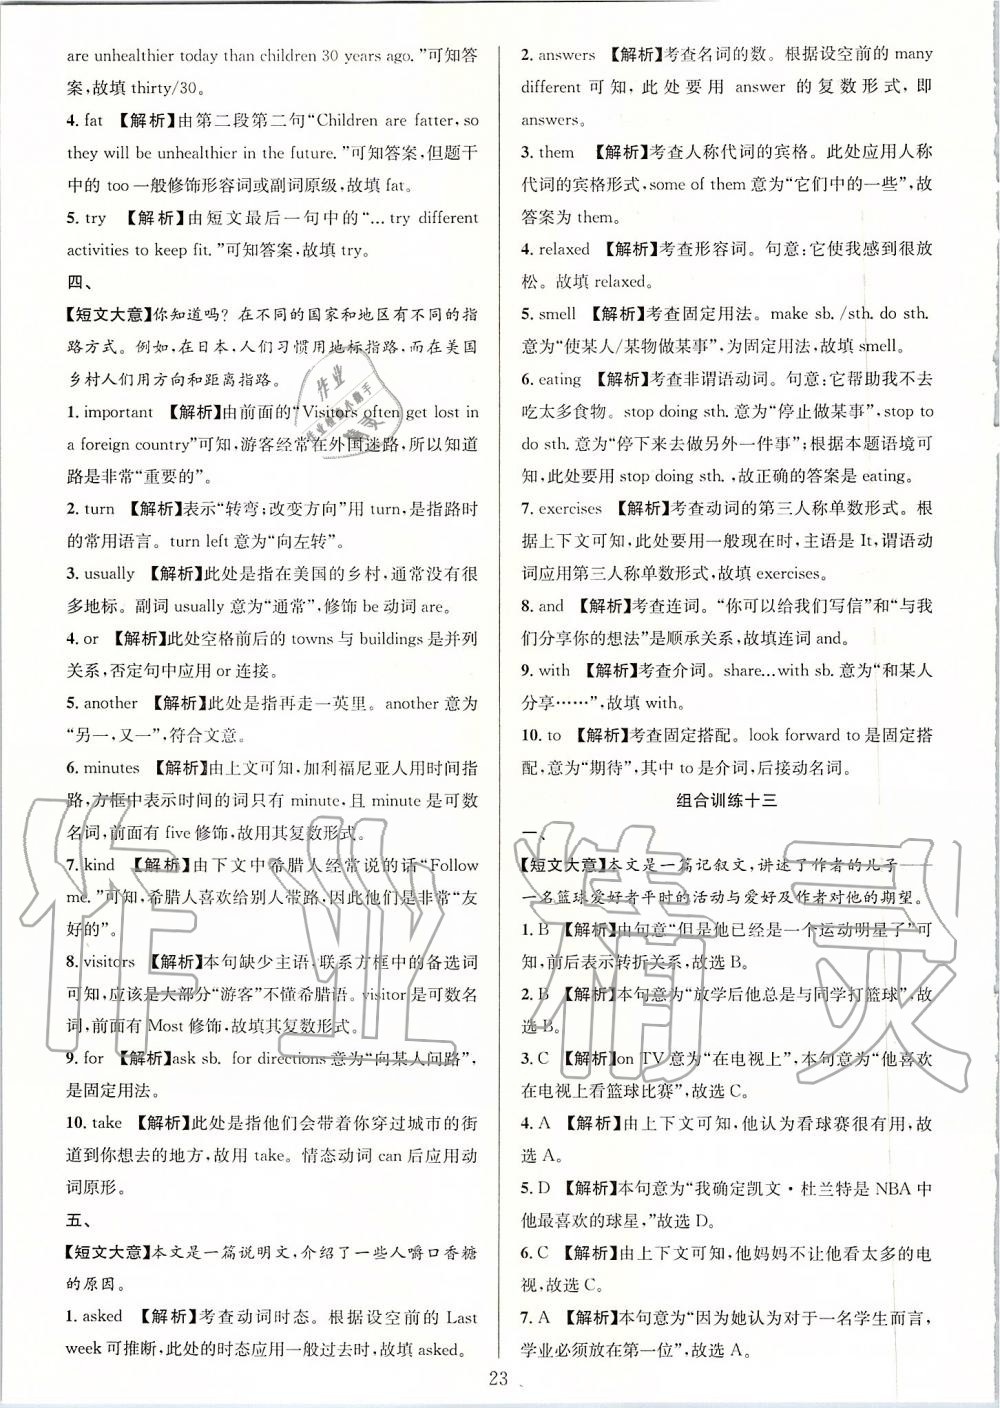 are unhealthier today than children 30 years ago.”可知答
案,故填 thirty/30。
4. fat 【解析】由第二段第二句“Children are fatter, so
they will be unhealthier in the future.”可知答案,但题干
中的 too 一般修饰形容词或副词原级,故填 fat。
5. try 【解析】由短文最后一句中的“... try different
activities to keep fit.”可知答案,故填 try。
四、
【短文大意】你知道吗? 在不同的国家和地区有不同的指
路方式。例如,在日本,人们习惯用地标指路,而在美国
乡村人们用方向和距离指路。
1. important 【解析】由前面的“Visitors often get lost in
a foreign country”可知,游客经常在外国迷路,所以知道
路是非常“重要的”。
2. turn 【解析】表示“转弯;改变方向”用 turn,是指路时
的常用语言。turn left 意为“向左转”。
3. usually 【解析】此处是指在美国的乡村,通常没有很
多地标。副词 usually 意为“通常”,修饰 be 动词 are。
4. or 【解析】此处空格前后的 towns 与 buildings 是并列
关系,否定句中应用 or 连接。
5. another 【解析】此处是指再走一英里。another 意为
“另一,又一”,符合文意。
6. minutes 【解析】由上文可知,加利福尼亚人用时间指
路,方框中表示时间的词只有 minute,且 minute 是可数
名词,前面有 five 修饰,故用其复数形式。
7. kind 【解析】由下文中希腊人经常说的话“Follow
me.”可知,希腊人喜欢给别人带路,因此他们是非常“友
好的”。
8. visitors 【解析】本句缺少主语,联系方框中的备选词
可知,应该是大部分“游客”不懂希腊语。visitor 是可数名
词,前面有 Most 修饰,故填其复数形式。
9. for 【解析】ask sb. for directions 意为“向某人问路”,
是固定用法。
10. take 【解析】此处是指他们会带着你穿过城市的街
道到你想去的地方,故用 take。情态动词 can 后应用动
词原形。
五、
【短文大意】本文是一篇说明文,介绍了一些人嚼口香糖
的原因。
1. asked 【解析】考查动词时态。根据设空前的 Last
week 可推断,此处的时态应用一般过去时,故填 asked。
2. answers 【解析】考查名词的数。根据设空前的 many
different 可知,此处要用 answer 的复数形式,即
answers。
3. them 【解析】考查人称代词的宾格。此处应用人称
代词的宾格形式,some of them 意为“它们中的一些”,故
答案为 them。
4. relaxed 【解析】考查形容词。句意:它使我感到很放
松。故填 relaxed。
5. smell 【解析】考查固定用法。make sb. /sth. do sth.
意为“使某人/某物做某事”,为固定用法,故填 smell。
6. eating 【解析】考查非谓语动词。句意:它帮助我不去
吃太多食物。stop doing sth. 意为“停止做某事”,stop to
do sth. 意为“停下来去做另外一件事”;根据本题语境可
知,此处要用 stop doing sth. ,故正确的答案是 eating。
7. exercises 【解析】考查动词的第三人称单数形式。根
据上下文可知,此处要用一般现在时,主语是 It,谓语动
词应用第三人称单数形式,故填 exercises。
8. and 【解析】考查连词。“你可以给我们写信”和“与我
们分享你的想法”是顺承关系,故填连词 and。
9. with 【解析】考查介词。share...with sb. 意为“和某人
分享……”,故填 with。
10. to 【解析】考查固定搭配。look forward to 是固定搭
配,意为“期待”,其中 to 是介词,后接动名词。
组合训练十三
一、
【短文大意】本文是一篇记叙文,讲述了作者的儿子——
一名篮球爱好者平时的活动与爱好及作者对他的期望。
1. B 【解析】由句意“但是他已经是一个运动明星了”可
知,前后表示转折关系,故选 B。
2. B 【解析】本句意为“放学后他总是与同学打篮球”,故
选 B。
3. C 【解析】on TV 意为“在电视上”,本句意为“他喜欢
在电视上看篮球比赛”,故选 C。
4. A 【解析】由上下文可知,他认为看球赛很有用,故
选 A。
5. D 【解析】本句意为“我确定凯文·杜兰特是 NBA 中
他最喜欢的球星,”故选 D。
6. C 【解析】由上下文可知,他妈妈不让他看太多的电
视,故选 C。
7. A 【解析】本句意为“因为她认为对于一名学生而言,
学业必须放在第一位”,故选 A。
23
作业精灵